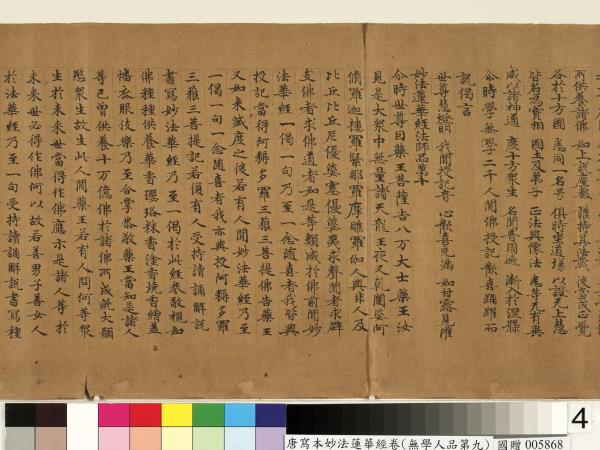 所供養諸佛 如上說塵數 護持其法藏 後當成正覺
各於十方國 悉同一名号 俱時坐道場 以證无上慧
皆名為寶相 國土及弟子 正法與像法 悉等无有異
咸以諸神通 度十方眾生 名聞普周遍 漸入於涅槃
尒時學无學二千人聞佛授記歡喜踊躍而
說偈言
世尊慧燈明 我聞授記音 心歡喜充滿 如甘露見灌
妙法蓮華經法師品第十
尒時世尊因藥王菩薩告八万大士藥王汝
見是大眾中無量諸天龍王夜叉乾闥婆阿
脩羅迦樓羅緊那羅摩睺羅伽人與非人及
比丘比丘尼優婆塞優婆夷求聲聞者求辟
支佛者求佛道者如是等類咸於佛前聞妙
法華經一偈一句乃至一念隨喜者我皆與
授記當得阿耨多羅三藐三菩提佛告藥王
又如來滅度之後若有人聞妙法華經乃至
一偈一句一念隨喜者我亦與授阿耨多羅
三藐三菩提記若復有人受持讀誦解說
書寫妙法華經乃至一偈於此經卷敬視如
佛種種供養華香瓔珞秣香塗香燒香繒蓋
幡衣服伎樂乃至合掌恭敬藥王當知是諸人
等已曾供養十万億佛於諸佛所成就大願
愍眾生故生此人間藥王若有人問何等眾
生於未來世當得作佛應示是諸人等於
未來世必得作佛何以故若善男子善女人
於法華經乃至一句受持讀誦解說書寫種
4
唐寫本妙法蓮華經卷(無學人品第九) 國贈 005868